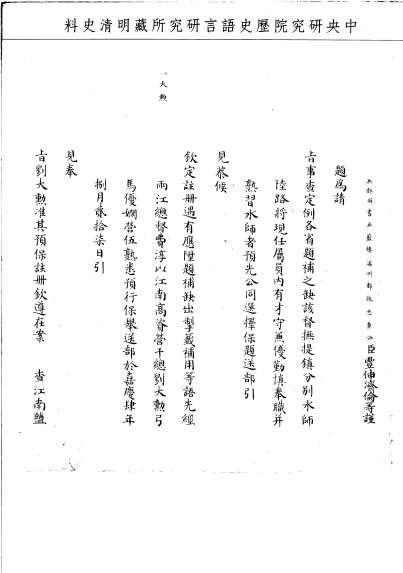 中央研究院歷史語言研究所藏明清史料
兵部尚書正藍旗滿洲都統忠勇公臣豐伸濟倫等謹
題為請
旨事查定例各省題補之缺該督撫提鎮分別水師
陸路將現任屬員內有才守兼優勤慎奉職并
熟習水師者預先公同選擇保題送部引
見恭候
欽定註冊遇有應陞題補缺出掣籤補用等語先經
兩江總督費淳以江南高資營千總劉大勲弓
大勲
馬優嫻營伍熟悉預行保舉送部於嘉慶肆年
捌月貳拾柒日引
見奉
旨劉大勲准其預保註冊欽遵在案 查江南鹽